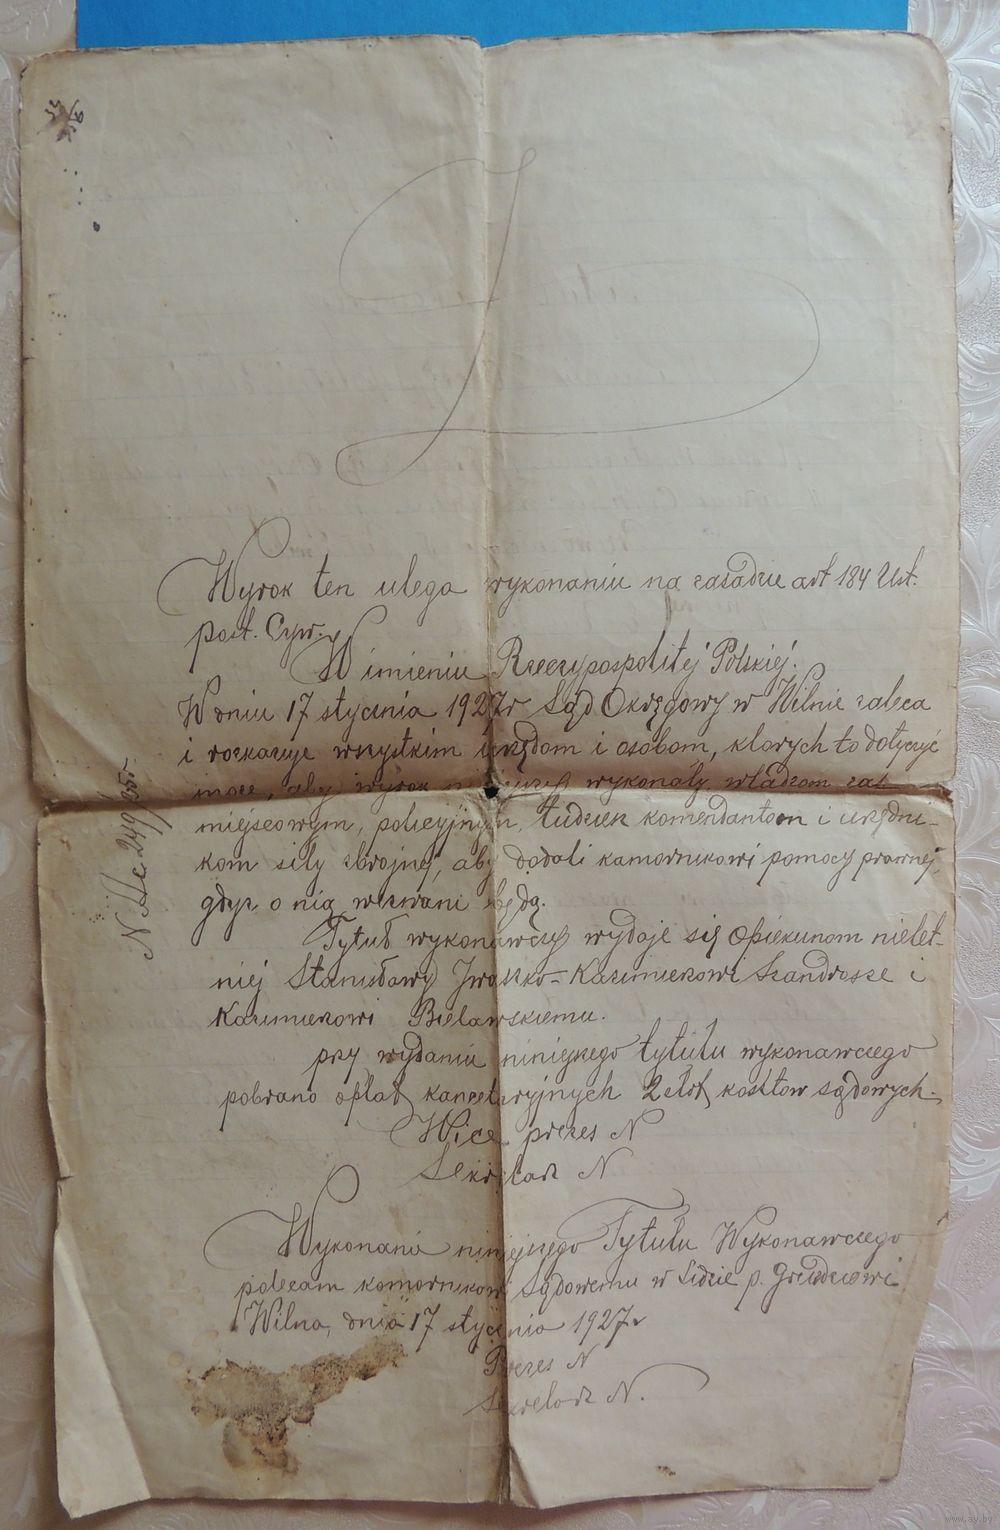 Wyrok ten ulega wykonaniu na zasadzie art 184 Ust.
post. Cyw.
W imieniu Rzeczypospolitej Polskiej.
W dniu 17 stycznia 1927 r Sąd Okręgowy w Wilnie zaleca
i rozkazuje wszystkim urzędom i osobom, ktorych to dotyczyć
może, aby wyrok niniejszy wykonały, władzom zaś
miejscowym, policyjnym, tudzież komendantom i urzędni-
kom siły zbrojnej, aby dodali komornikowi pomocy prawnej,
gdyż o nią wezwani będą.
Tytuł wykonawczy wydaje się opiekunom nielet-
niej Stanisławy Iwaszko - Kazimierzowi Szandrosze i
Kazimierzowi Bielawskiemu.
przy wydaniu niniejszego tytułu wykonawczego
pobrano opłat kancelaryjnych 2 złot, kosztow sądowych.
Wice prezes N
Sekretarz N
Wykonanie niniejszego Tytułu Wykonawczego
polecam komornikowi Sądowemu w Lidzie p. Grudzowi
Wilno, dnia 17 stycznia 1927 r
Prezes N
Sekretarz N.
249/35r
www.ay.by